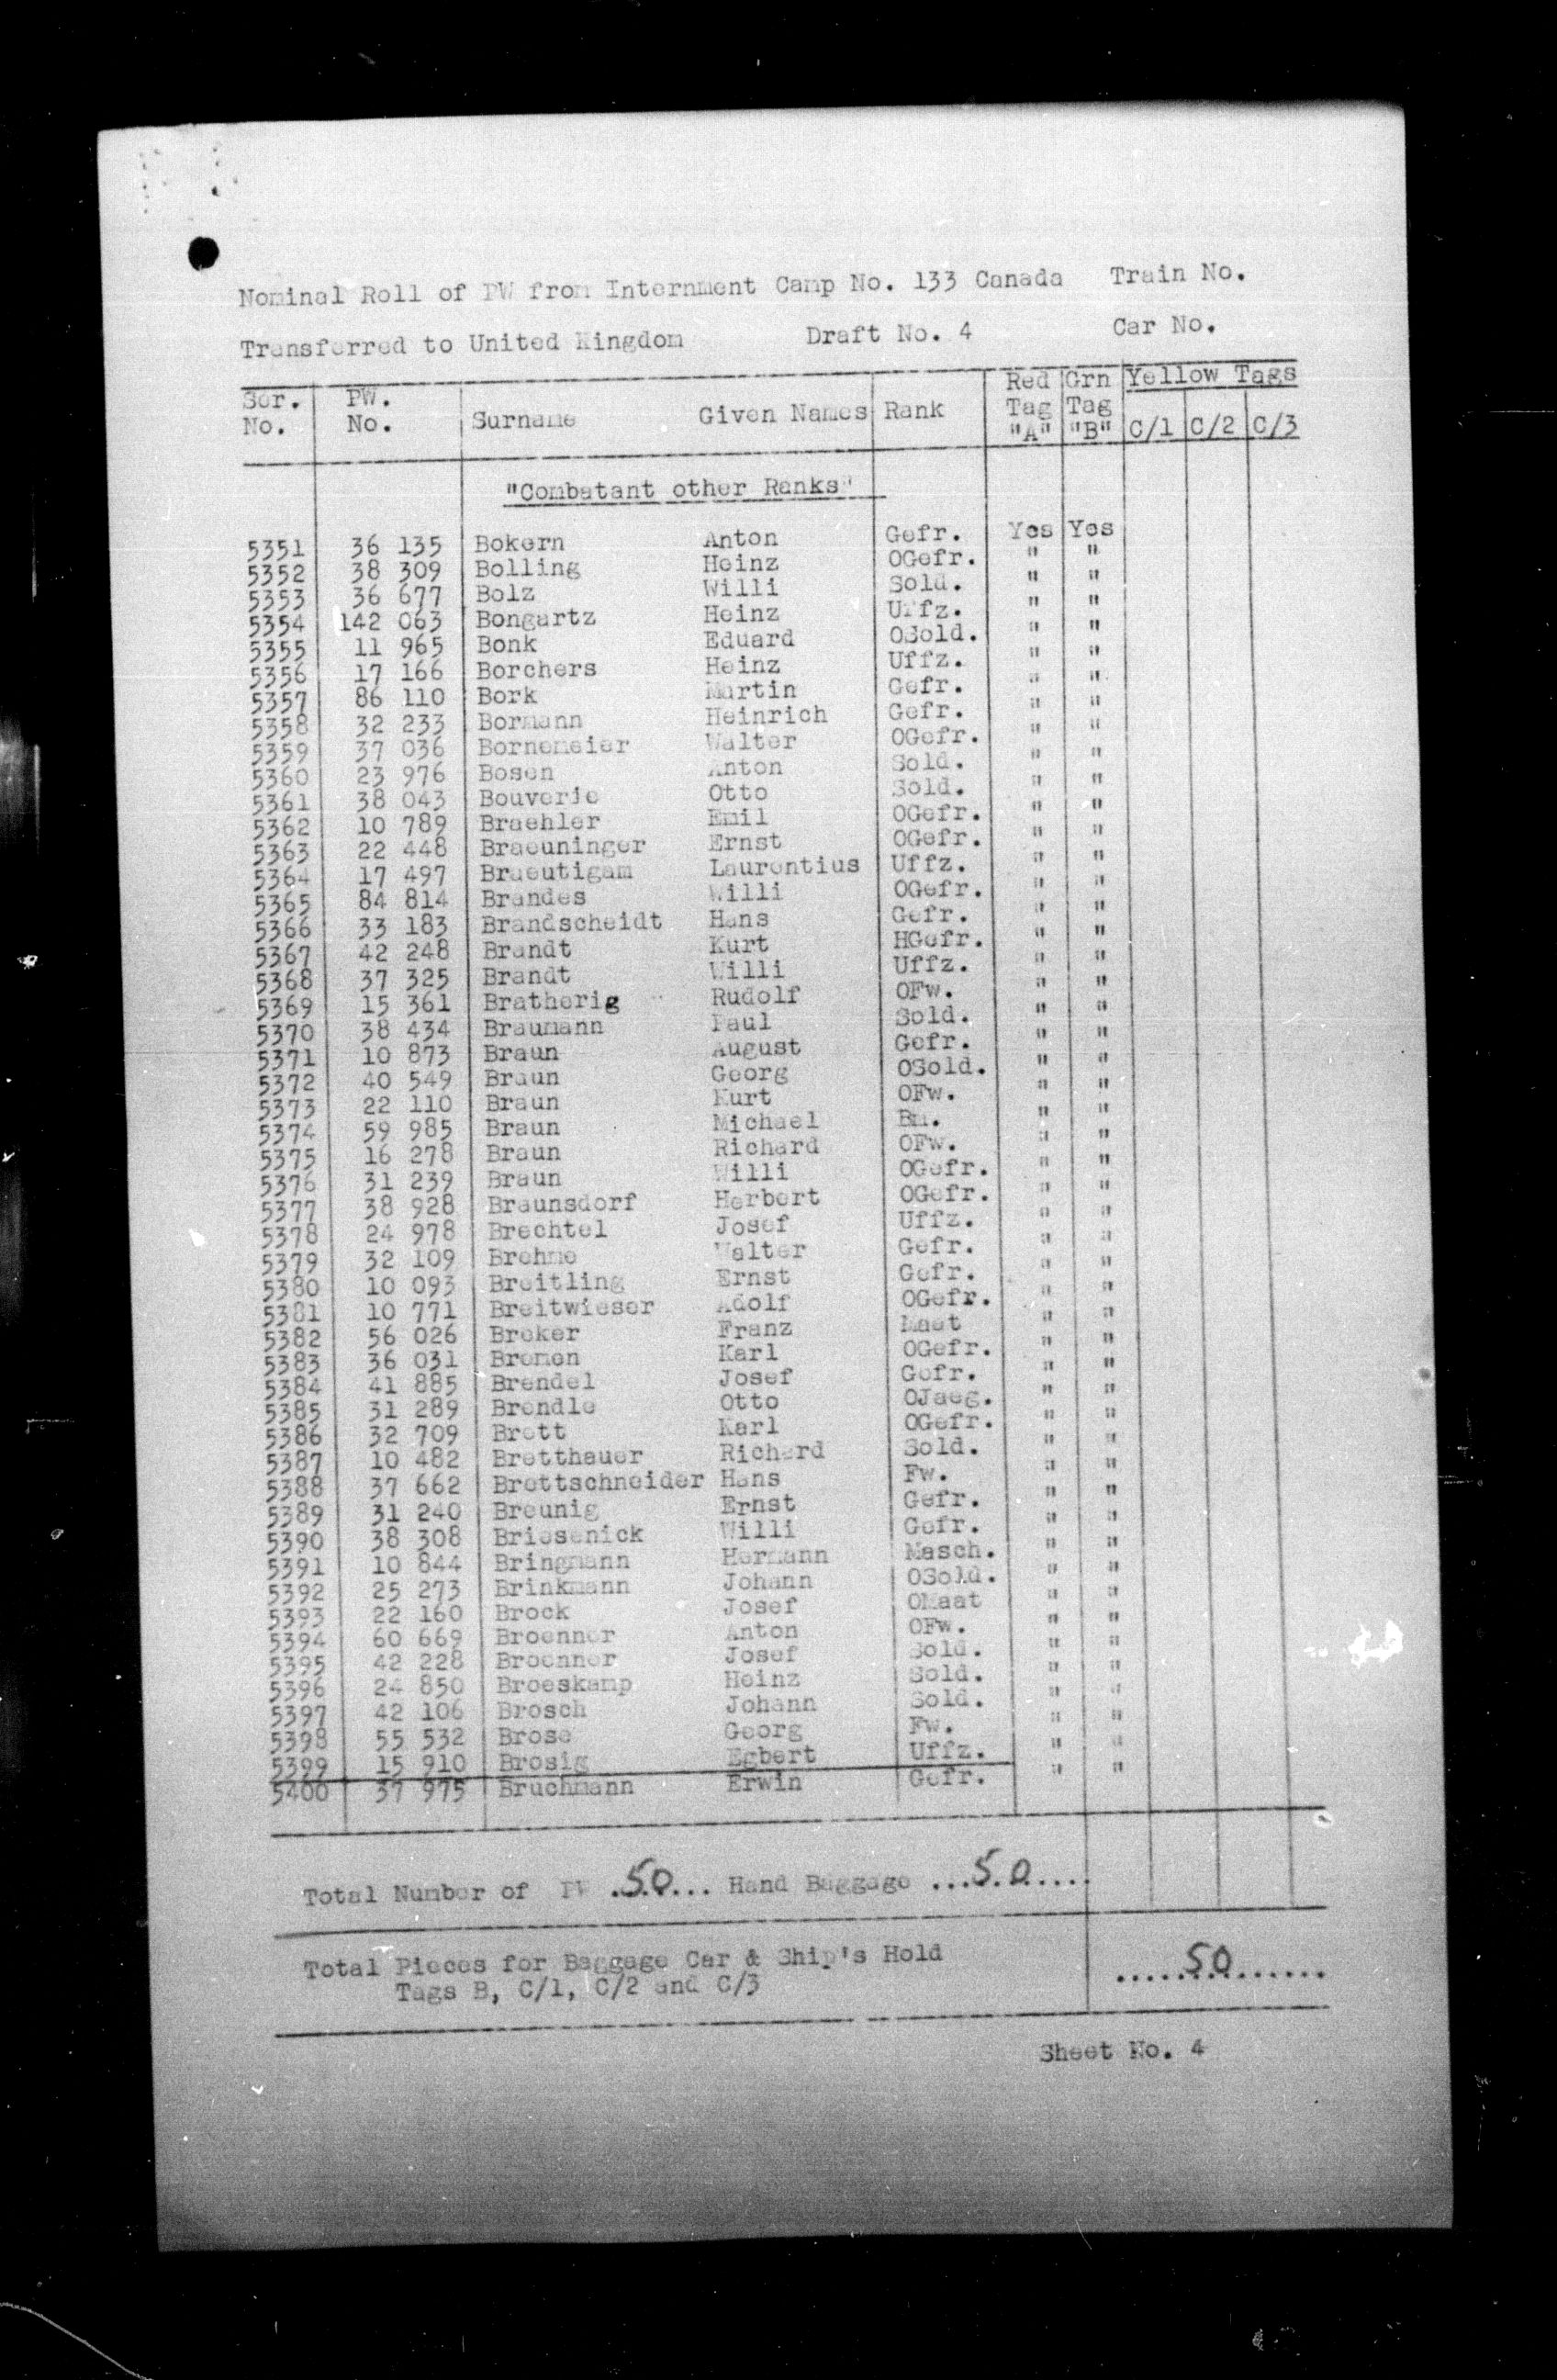 Nominal Roll of PW from Internment Camp No. 133 Canada Train No.
Transferred to United Kingdom Draft No. 4 Car No.
Ser. No. PW. No. Surname Given Names Rank Red Tag "A" Grn Tag "B" Yellow Tags C/1 C/2 C/3
"Combatant other Ranks"
5351 36 135 Bokern Anton Gefr. Yes Yes
5352 38 309 Bolling Heinz OGefr. " "
5353 36 677 Bolz Willi Sold. " "
5354 142 063 Bongartz Heinz Uffz. " "
5355 11 965 Bonk Eduard OSold. " "
5356 17 166 Borchers Heinz Uffz. " "
5357 86 110 Bork Martin Gefr. " "
5358 32 233 Bormann Heinrich Gefr. " "
5359 37 036 Bornemeier Walter OGefr. " "
5360 23 976 Bosen Anton Sold. " "
5361 38 043 Bouverie Otto Sold. " "
5362 10 789 Braehler Emil OGefr. " "
5363 22 448 Braeuninger Ernst OGefr. " "
5364 17 497 Braeutigam Laurentius Uffz. " "
5365 84 814 Brandes Willi OGefr. " "
5366 33 183 Brandscheidt Hans Gefr. " "
5367 42 248 Brandt Kurt HGefr. " "
5368 37 325 Brandt Willi Uffz. " "
5369 15 361 Bratherig Rudolf OFw. " "
5370 38 434 Braumann Paul Sold. " "
5371 10 873 Braun August Gefr. " "
5372 40 549 Braun Georg OSold. " "
5373 22 110 Braun Kurt OFw. " "
5374 59 985 Braun Michael Bm. " "
5375 16 278 Braun Richard OFw. " "
5376 31 239 Braun Willi OGefr. " "
5377 38 928 Braunsdorf Herbert OGefr. " "
5378 24 978 Brechtel Josef Uffz. " "
5379 32 109 Brehme Walter Gefr. " "
5380 10 093 Breitling Ernst Gefr. " "
5381 10 771 Breitwieser Adolf OGefr. " "
5382 56 026 Breker Franz Maat " "
5383 36 031 Bremen Karl OGefr. " "
5384 41 885 Brendel Josef Gefr. " "
5385 31 289 Brendle Otto OJaeg. " "
5386 32 709 Brett Karl OGefr. " "
5387 10 482 Bretthauer Richard Sold. " "
5388 37 662 Brettschneider Hans Fw. " "
5389 31 240 Breunig Ernst Gefr. " "
5390 38 308 Briesenick Willi Gefr. " "
5391 10 844 Bringmann Hermann Masch. " "
5392 25 273 Brinkmann Johann OSold. " "
5393 22 160 Brock Josef OMaat " "
5394 60 669 Broenner Anton OFw. " "
5395 42 228 Broenner Josef Sold. " "
5396 24 850 Broeskamp Heinz Sold. " "
5397 42 106 Brosch Johann Sold. " "
5398 55 532 Brose Georg Fw. " "
5399 15 910 Brosig Egbert Uffz. " "
5400 37 975 Bruchmann Erwin Gefr. " "
Total Number of PW .50... Hand Baggage ...50.....
Total Pieces for Baggage Car & Ship's Hold
Tags B, C/1, C/2 and C/3 .....50.......
Sheet No. 4